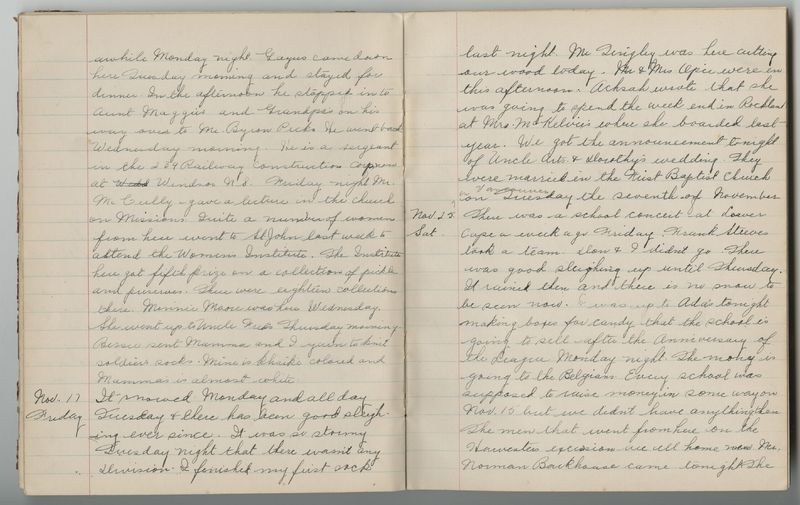 awhile Monday night. Gagus came down
here Tuesday morning and stayed for
dinner In the afternoon he stopped in to
Aunt Maggies and Grandpa's on his
way over to Mr. Byron Pecks He went back
Wednesday morning. He is a sergeant
in the 239 Railway Construction Corps
at Windsor N.S. Friday night Mr.
Mc Cully - gave a lecture in the church
on Missions Quite a number of women
from here went to St John last week to
attend the Womens Institute. The Institute
here got fifth prize on a collection of pickles
and preserves. There were eighteen collections
there. Minnie Moore was here Wednesday.
She went up to Uncle Thursday morning
Bessie sent Mamma and I yarn to knit
soldiers socks. Mine is khaki colored and
Mammas is almost white.
Nov. 17 It snowed Monday and all day
Friday Tuesday & there has been good sleigh-
ing ever since. It was so stormy
Tuesday night that there wasn't any
Division. I finished my first sock
last night. Mr Tingley was here cutting
our wood today. Mr & Mrs Opie were in
this afternoon. Achsah wrote that she
was going to spend the week end in Rockland
at Mrs. McKelvie's where she boarded last
year. We got the announcement tonight
of Uncle Arts. & Dorothy's wedding. They
were married in the First Baptist Church
in Vancouver
on Tuesday the seventh of November
Nov. 25 There was a school concert at Lower
Sat. Cape a week ago Friday. Frank Steeves
took a team. & I didn't go There
was good sleighing up until Thursday.
It rained then and there is no snow to
be seen now. I was up to Ada's tonight
making boxes for candy that the school is
going to sell after the Anniversary of
the League Monday night The money is
going to the Belgians. Every school was
supposed to raise money in some way on
Nov. 15 but we didn't have anything then
The men that went from here on the
Harvesters excursion are all home now. Mr.
Norman Barkhouse came tonight. The